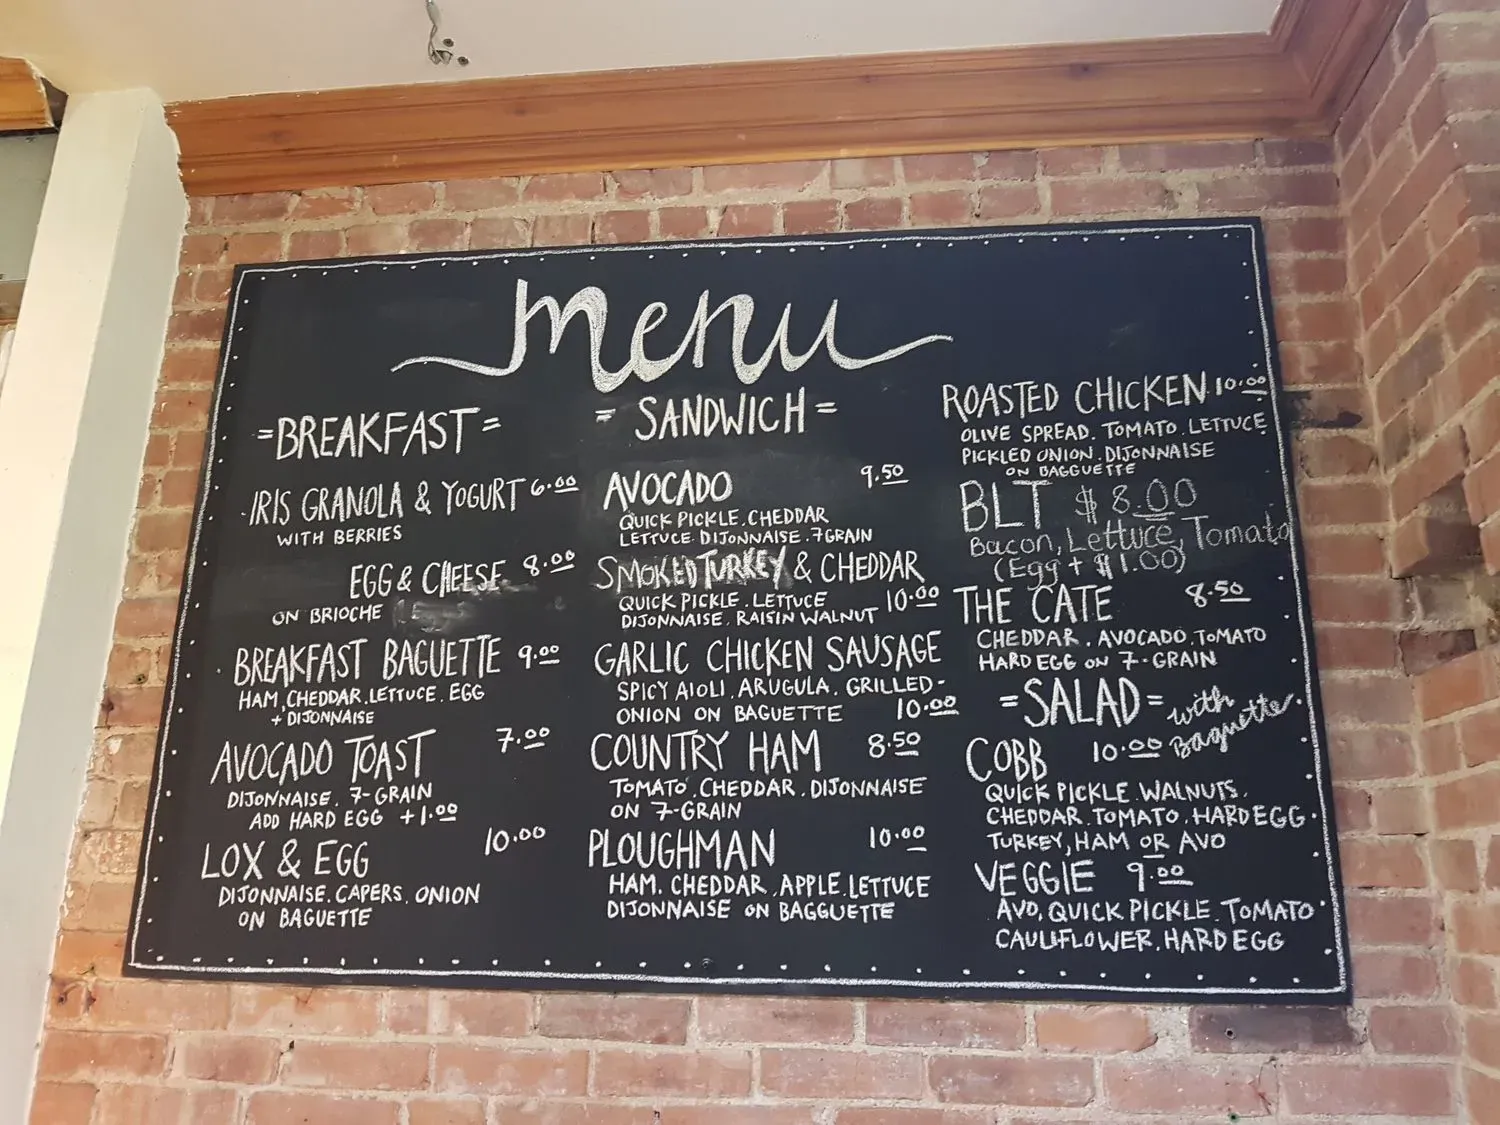 menu
=BREAKFAST=
IRIS GRANOLA & YOGURT 6.00
WITH BERRIES
EGG & CHEESE 8.00
ON BRIOCHE
BREAKFAST BAGUETTE 9.00
HAM, CHEDDAR. LETTUCE. EGG
+ DIJONNAISE
AVOCADO TOAST 7.00
DIJONNAISE. 7-GRAIN
ADD HARD EGG +1.00
LOX & EGG 10.00
DIJONNAISE. CAPERS. ONION
ON BAGUETTE
= SANDWICH =
AVOCADO 9.50
QUICK PICKLE. CHEDDAR
LETTUCE. DIJONNAISE. 7GRAIN
SMOKED TURKEY & CHEDDAR
QUICK PICKLE. LETTUCE 10.00
DIJONNAISE. RAISIN WALNUT
GARLIC CHICKEN SAUSAGE
SPICY AIOLI. ARUGULA. GRILLED-
ONION ON BAGUETTE 10.00
COUNTRY HAM 8.50
TOMATO. CHEDDAR. DIJONNAISE
ON 7-GRAIN
PLOUGHMAN 10.00
HAM. CHEDDAR. APPLE. LETTUCE
DIJONNAISE ON BAGGUETTE
ROASTED CHICKEN 10.00
OLIVE SPREAD. TOMATO. LETTUCE
PICKLED ONION. DIJONNAISE
ON BAGGUETTE
BLT $8.00
Bacon, Lettuce, Tomato
(Egg + $1.00)
THE CATE 8.50
CHEDDAR. AVOCADO. TOMATO
HARD EGG ON 7-GRAIN
=SALAD= with
Baguette
COBB 10.00
QUICK PICKLE. WALNUTS.
CHEDDAR. TOMATO. HARD EGG.
TURKEY, HAM OR AVO
VEGGIE 9.00
AVO, QUICK PICKLE. TOMATO.
CAULIFLOWER. HARD EGG